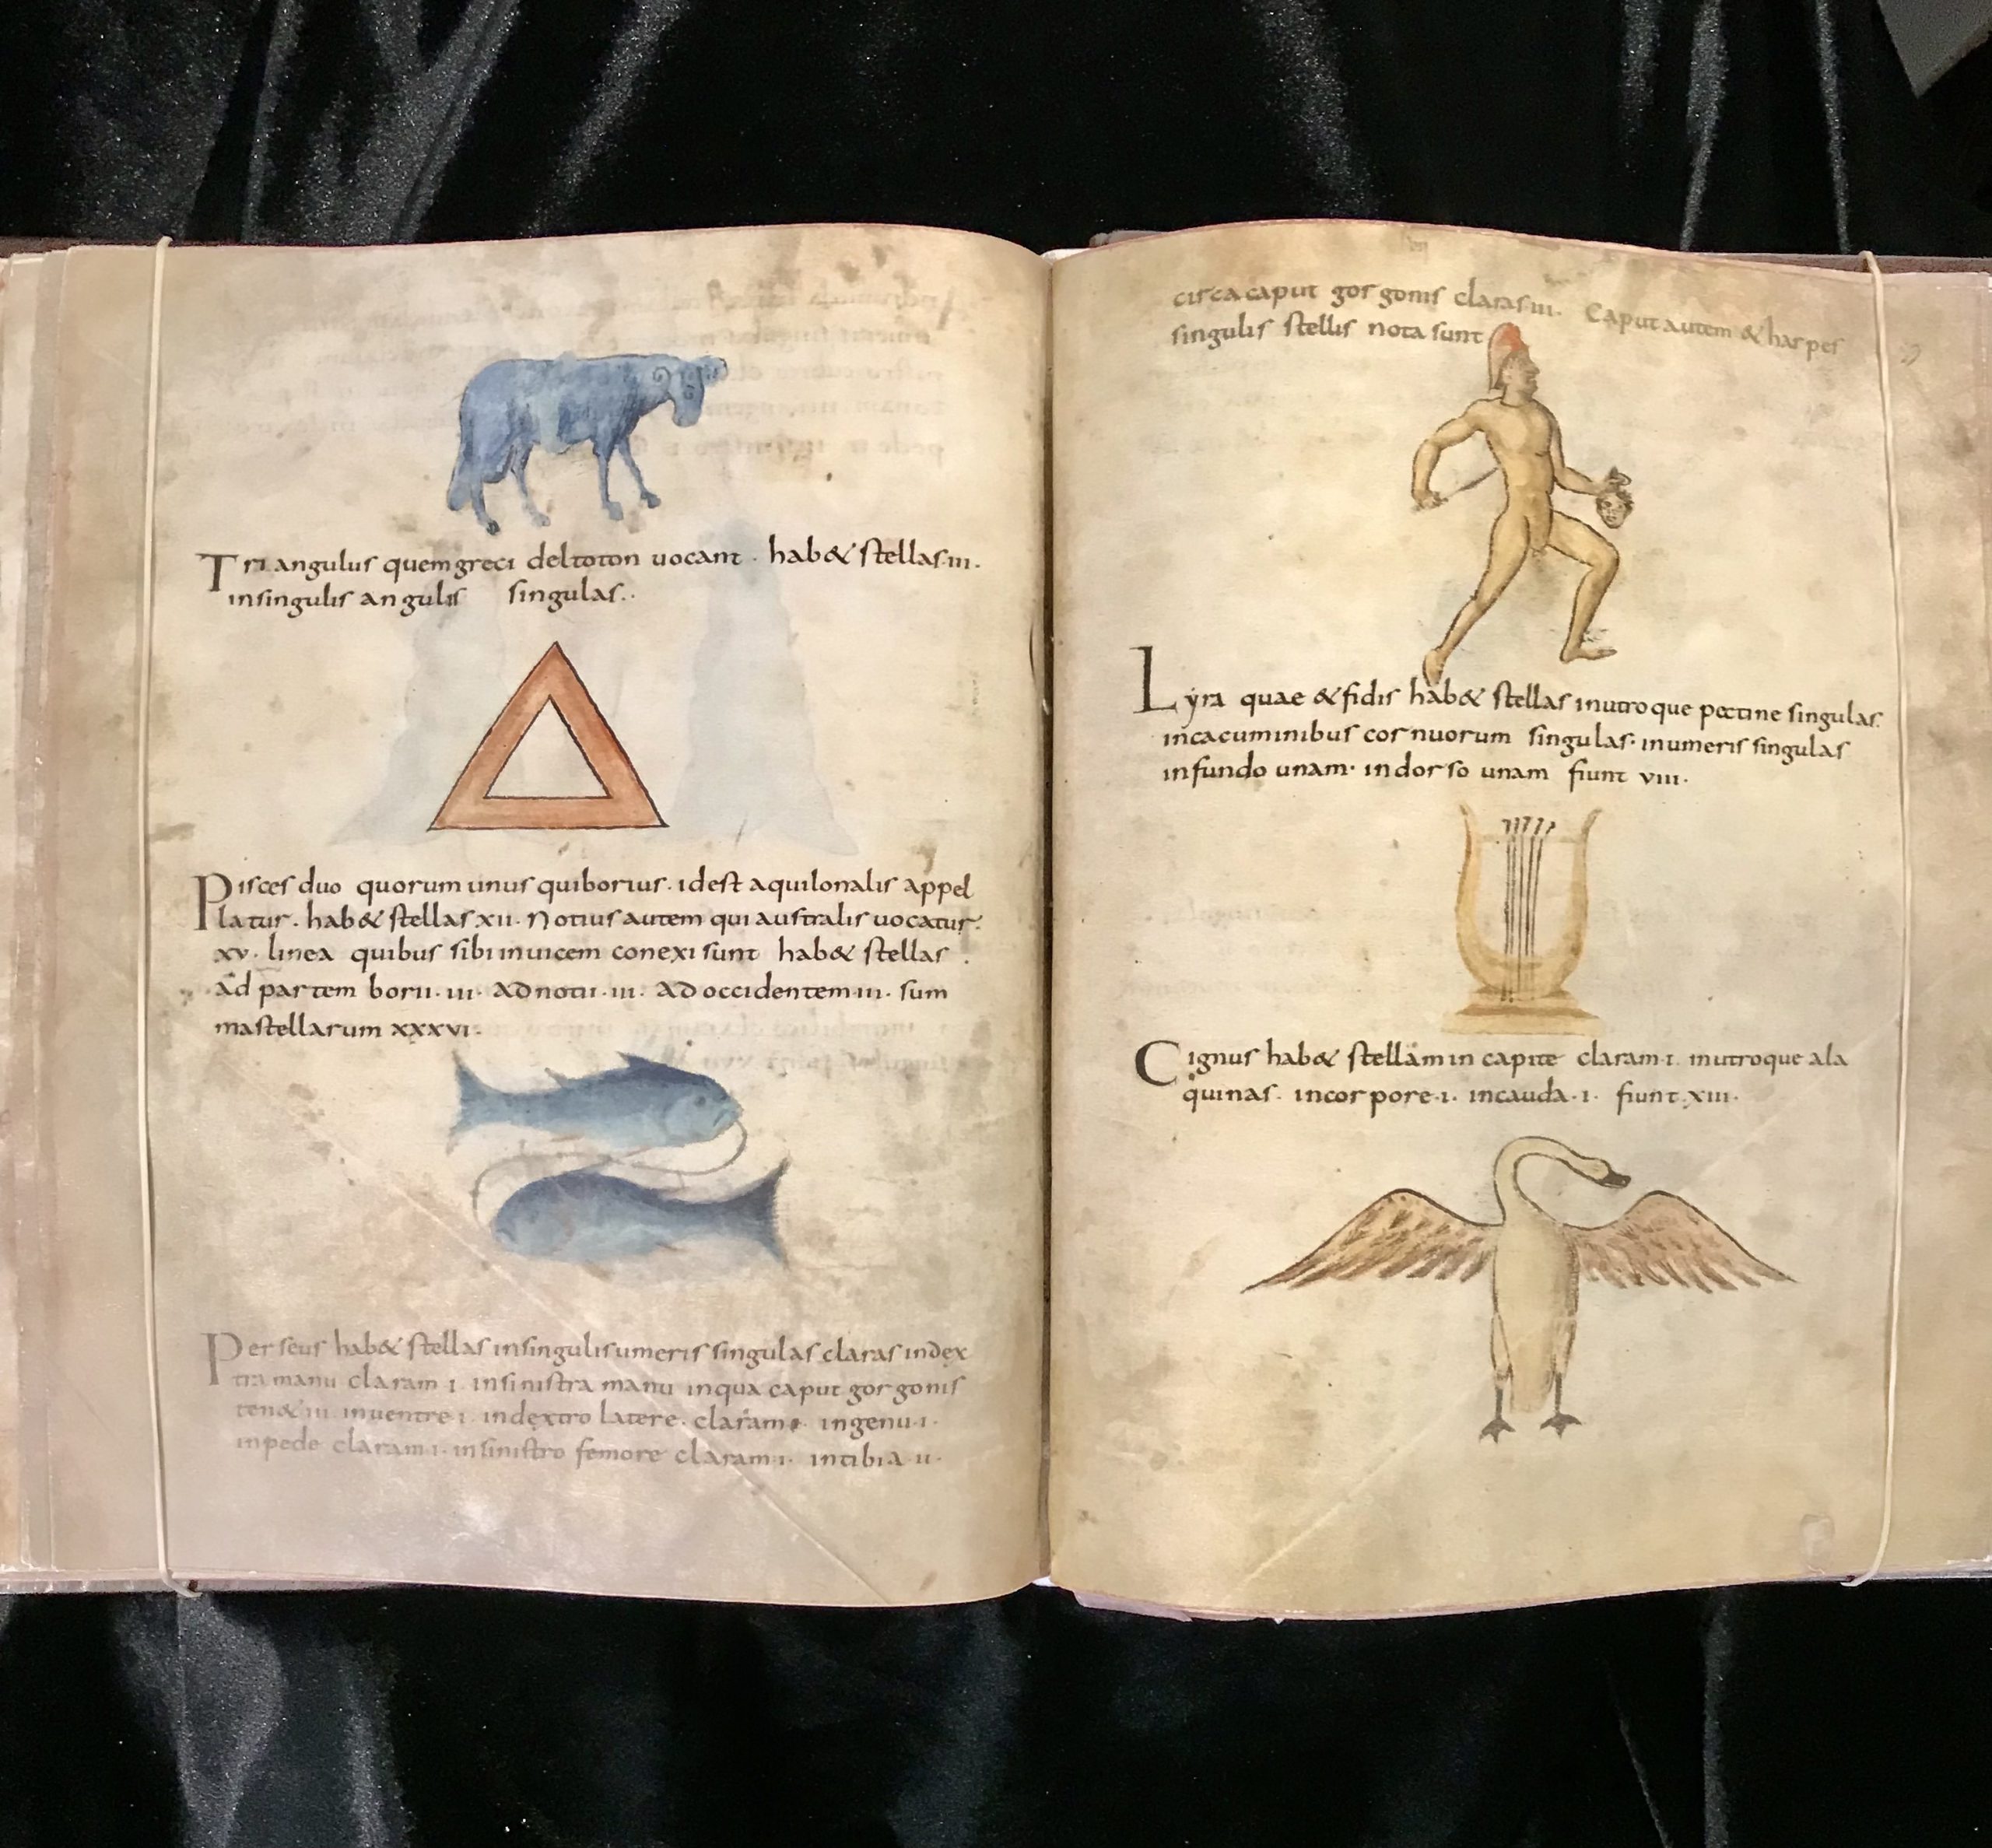 Triangulus quem greci deltoton uocant · hab& stellas·III·
in singulis angulis singulas··
Pisces duo quorum unus qui borius· id est aquilonalis appel
latur · hab& stellas XII· Notius autem qui australis uocatur·
XV· linea quibus sibi inuicem conexi sunt hab& stellas ·
ad partem borii·III· Ad notii·III· Ad occidentem·III· sum
ma stellarum XXXVI·
Perseus hab& stellas in singulis umeris singulas claras in dex
tra manu claram I· in sinistra manu in qua caput gorgonis
ten& III· in uentre I· in dextro latere· claram· in genu·I·
in pede claram·I· in sinistro femore claram·I· in tibia II·
circa caput gorgonis claras III· Caput autem & harpes
singulis stellis nota sunt
Lyra quae & fidis hab& stellas in utroque pectine singulas·
in cacuminibus cornuorum singulas· in umeris singulas
in fundo unam· in dorso unam fiunt VIII·
Cignus hab& stellam in capite claram·I· in utroque ala
quinas· in corpore·I· in cauda·I· fiunt·XIII·